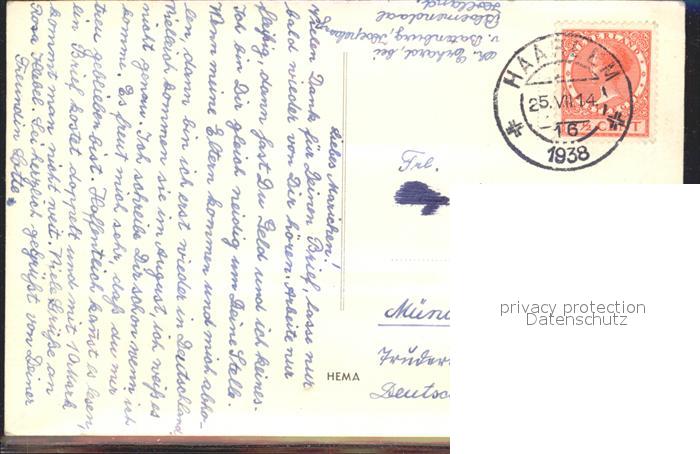 Liebes Mariechen!
Vielen Dank für Deinen Brief, lasse nur
bald wieder von Dir hören. Arbeite nur
fleißig, dann hast Du Geld und ich keines.
Ich bin Dir gleich neidig um Deine Stelle.
Wenn meine Eltern kommen und mich abho-
len, dann bin ich erst wieder in Deutschland.
Vielleich kommen sie im August, ich weiß es
nicht genau. Ich schreibe Dir schon wenn ich
komme. Es freut mich sehr, daß du mir
treu geblieben bist. Hoffentlich kannst es lesen,
ein Brief kostet doppelt und mit 10 Mark
kommt man nicht weit. Viele Grüße an
Rosa Sei herzlich gegrüßt von Deiner
Freundin Lotte.
Erhard, bei
v.
Bloemendaal
Holland.
HAARLEM
25.VII.14
16
1938
CENT
Frl.
Münc
Truder
Deutsc
HEMA
privacy protection
Datenschutz